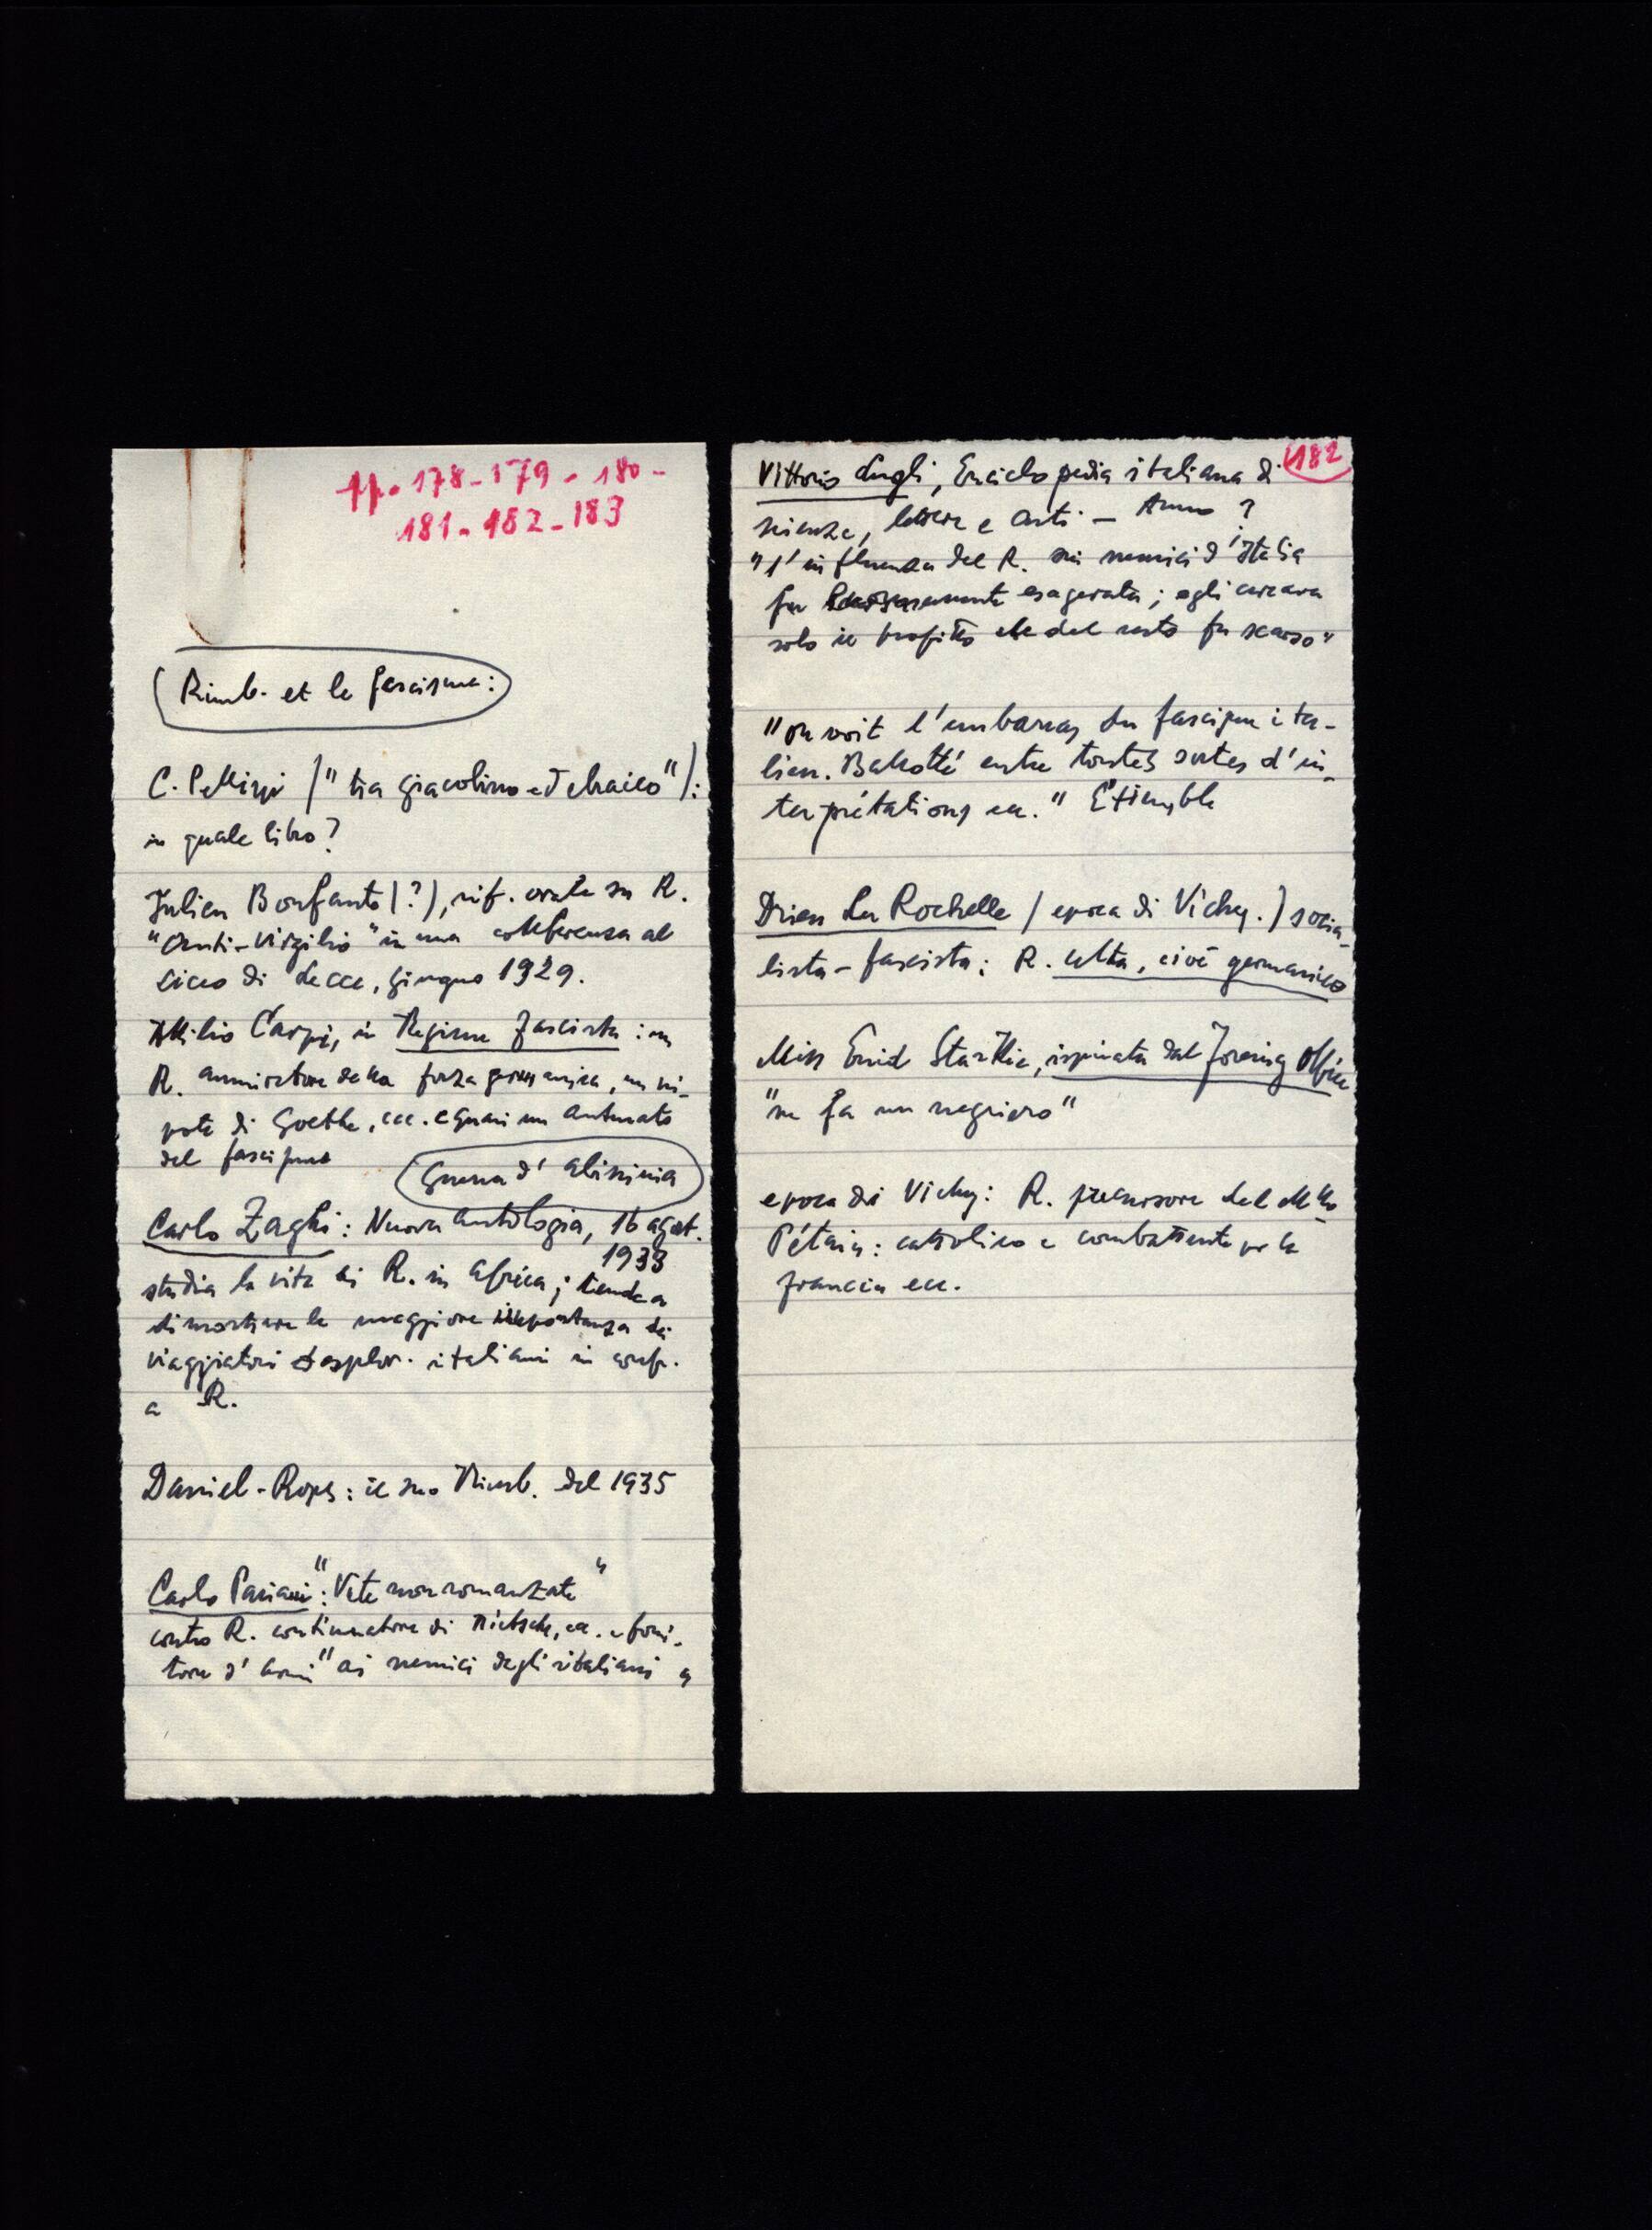 pp. 178-179-180-
181-182-183
Rimb. et le fascisme:
C. Pellizzi ("tra giacobino ed ebraico"):
in quale libro?
Julien Bonfante (?), rif. orale su R.
"anti-Virgilio" in una conferenza al
liceo di Lecce, giugno 1929.
Attilio Carpi, in Regime fascista: un
R. annunciatore della forza germanica, un ni-
pote di Goethe, ecc. e quasi un antenato
del fascismo
Guerra d'Abissinia
Carlo Zaghi: Nuova Antologia, 16 agost.
1933
studia la vita di R. in Africa; tende a
dimostrare la maggiore importanza dei
viaggiatori ed esplor. italiani in conf.
a R.
Daniel-Rops: il suo Rimb. del 1935
Carlo Pariani: "Vite non romanzate"
contro R. continuatore di Nietsche, ec. e forni-
tore d'armi "ai nemici degli italiani"
182
Vittorio Lugli, Enciclopedia italiana di
scienze, lettere e Arti - Anno ?
"l'influenza del R. sui nemici d'Italia
fu esagerata; egli cercava
solo il profitto che del resto fu scarso"
"on voit l'embarras du fascisme ita-
lien. Ballotté entre toutes sortes d'in-
terprétations ec." Etiemble
Drieu La Rochelle (epoca di Vichy.) socia-
lista-fascista: R. celta, cioè germanico
Miss Enid Starkie, ispirata dal Foreing Office
"ne fa un negriero"
epoca di Vichy: R. precursore del M.llo
Pétain: cattolico e combattente per la
Francia ecc.